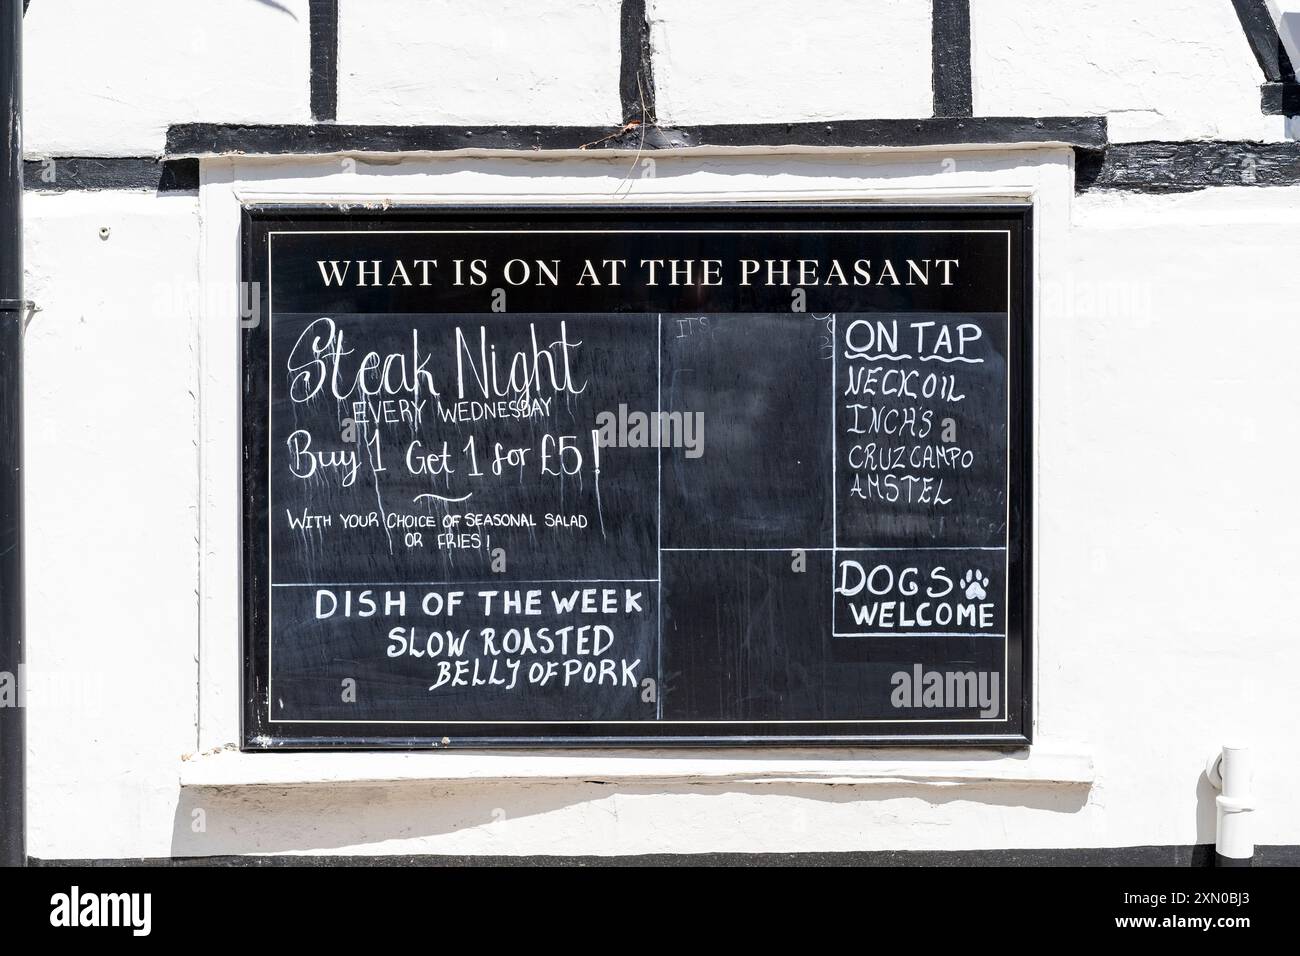 WHAT IS ON AT THE PHEASANT
Steak Night
EVERY WEDNESDAY
Buy 1 Get 1 for £5!
WITH YOUR CHOICE OF SEASONAL SALAD
OR FRIES!
DISH OF THE WEEK
SLOW ROASTED
BELLY OF PORK
ITS
ON TAP
NECK OIL
INCH'S
CRUZCAMPO
AMSTEL
DOGS
WELCOME
alamy
Image ID: 2XN0BJ3
www.alamy.com